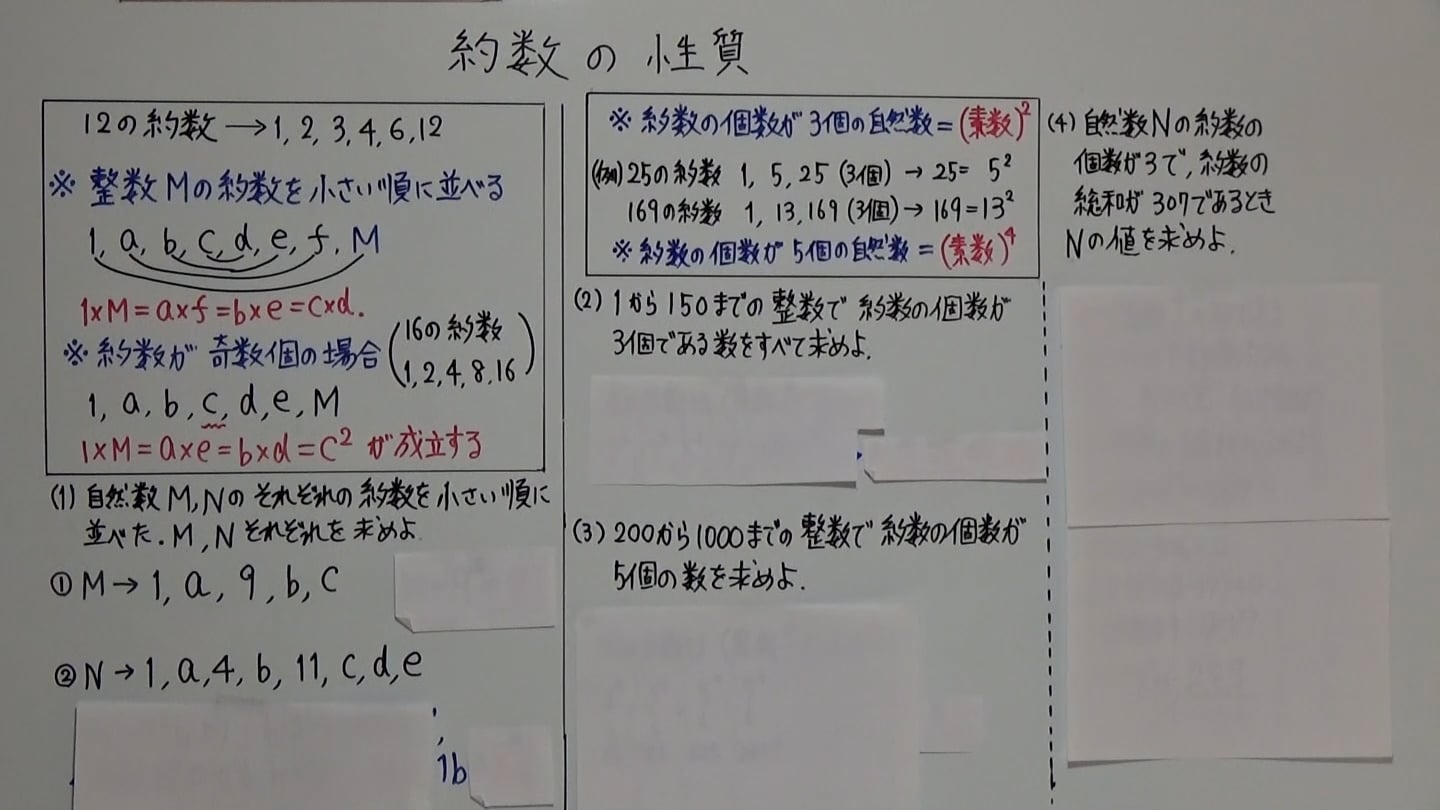 約数の性質
12の約数→1, 2, 3, 4, 6, 12
※ 整数Mの約数を小さい順に並べる
1, a, b, c, d, e, f, M
1×M=a×f=b×e=c×d.
※ 約数が奇数個の場合
(16の約数
1, 2, 4, 8, 16)
1, a, b, c, d, e, M
1×M=a×e=b×d=c² が成立する
(1) 自然数M, Nのそれぞれの約数を小さい順に
並べた. M, Nそれぞれを求めよ.
① M→1, a, 9, b, c
② N→1, a, 4, b, 11, c, d, e
1b
※ 約数の個数が3個の自然数=(素数)²
(例)25の約数 1, 5, 25 (3個)→25=5²
169の約数 1, 13, 169 (3個)→169=13²
※ 約数の個数が5個の自然数=(素数)⁴
(2) 1から150までの整数で約数の個数が
3個である数をすべて求めよ.
(3) 200から1000までの整数で約数の個数が
5個の数を求めよ.
(4) 自然数Nの約数の
個数が3で, 約数の
総和が307であるとき
Nの値を求めよ.